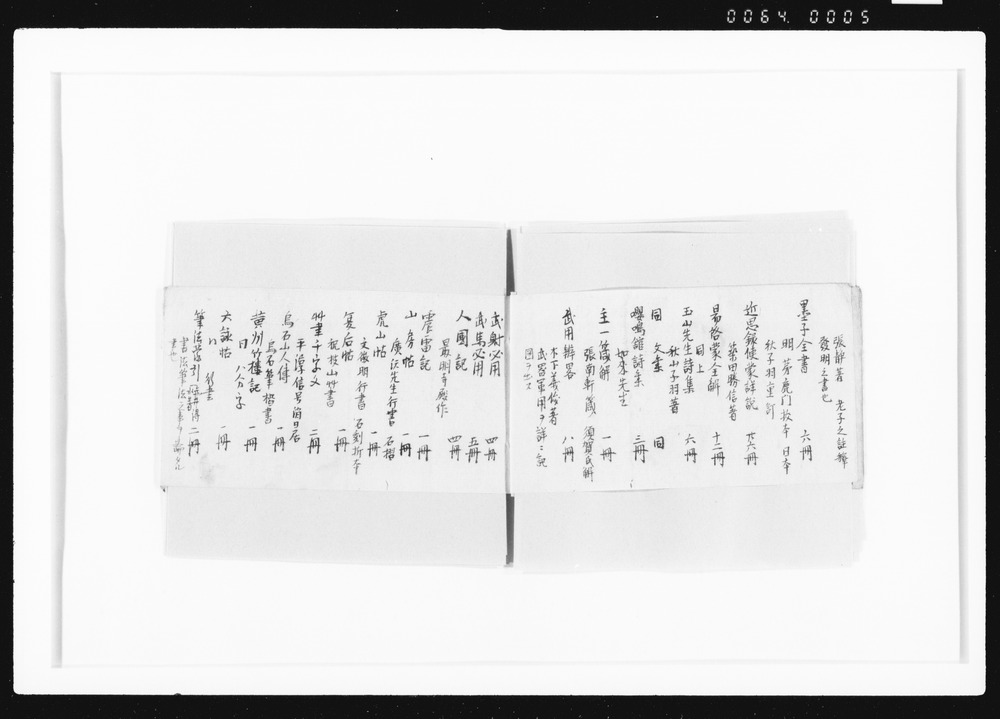 0064. 0005
張静著 老子之註釋
發明之書也
墨子全書 六冊
明茅鹿門校本 日本
秋子羽重訂
近思録使蒙詳説 廿六冊
築田勝信著
易啓蒙全解 十二冊
同上
玉山先生詩集 六冊
秋山子羽著
同 文集 同
嚶鳴館詩集 三冊
如来先生
主一箴解 一冊
張南軒箴 須賀氏解
武用辨畧 八冊
木下義俊著
武器軍用ヲ詳ニ記
図ヲ出ス
武射必用 四冊
武馬必用 五冊
人國記 四冊
最明寺殿作
霍雷記 一冊
山房帖 一冊
廣沢先生行書 石摺
虎山帖 一冊
文徴明行書 石刻折本
後帖 一冊
祝枝山艸書
艸書千字文 二冊
平
烏石山人傳 一冊
烏石筆 楷書
黄州竹樓記 一冊
同 八分字
六 帖 一冊
筆法 二冊